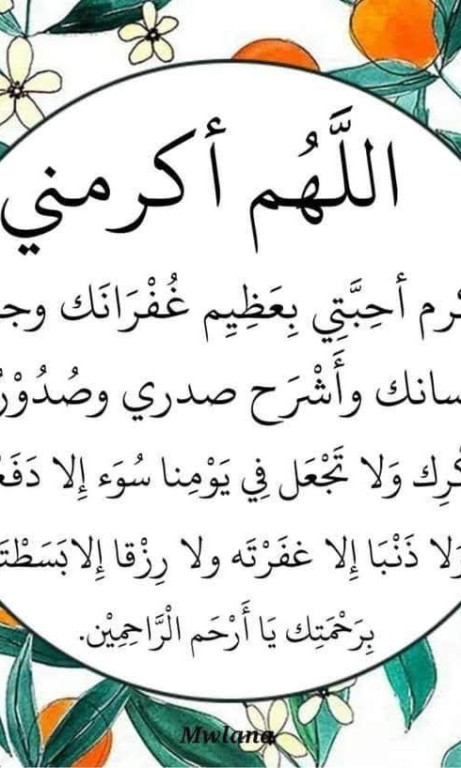 اللَّهُم أكرمني
أحِبَّتِي بِعَظِيِم غُفْرَانَك
وأَشْرَح صدري
وَلا تَجْعَل فِي يَوْمِنا سُوَء إِلا
ذَنْبَا إِلا غفَرْتَه ولا رِزْقا إِلا
بِرَحْمَتِك يَا أَرْحَم الْرَّاحِمِيْن.
Mwlana